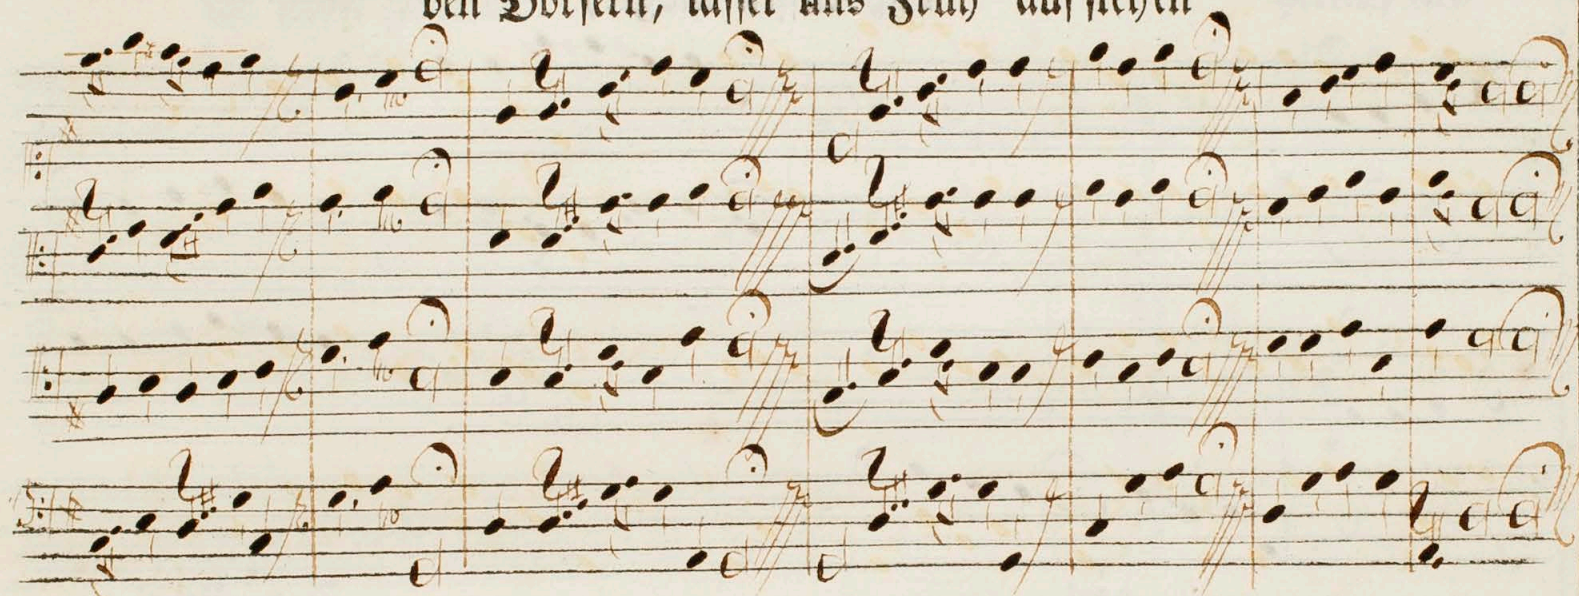 den Dörfern, lasset uns Früh aufstehen